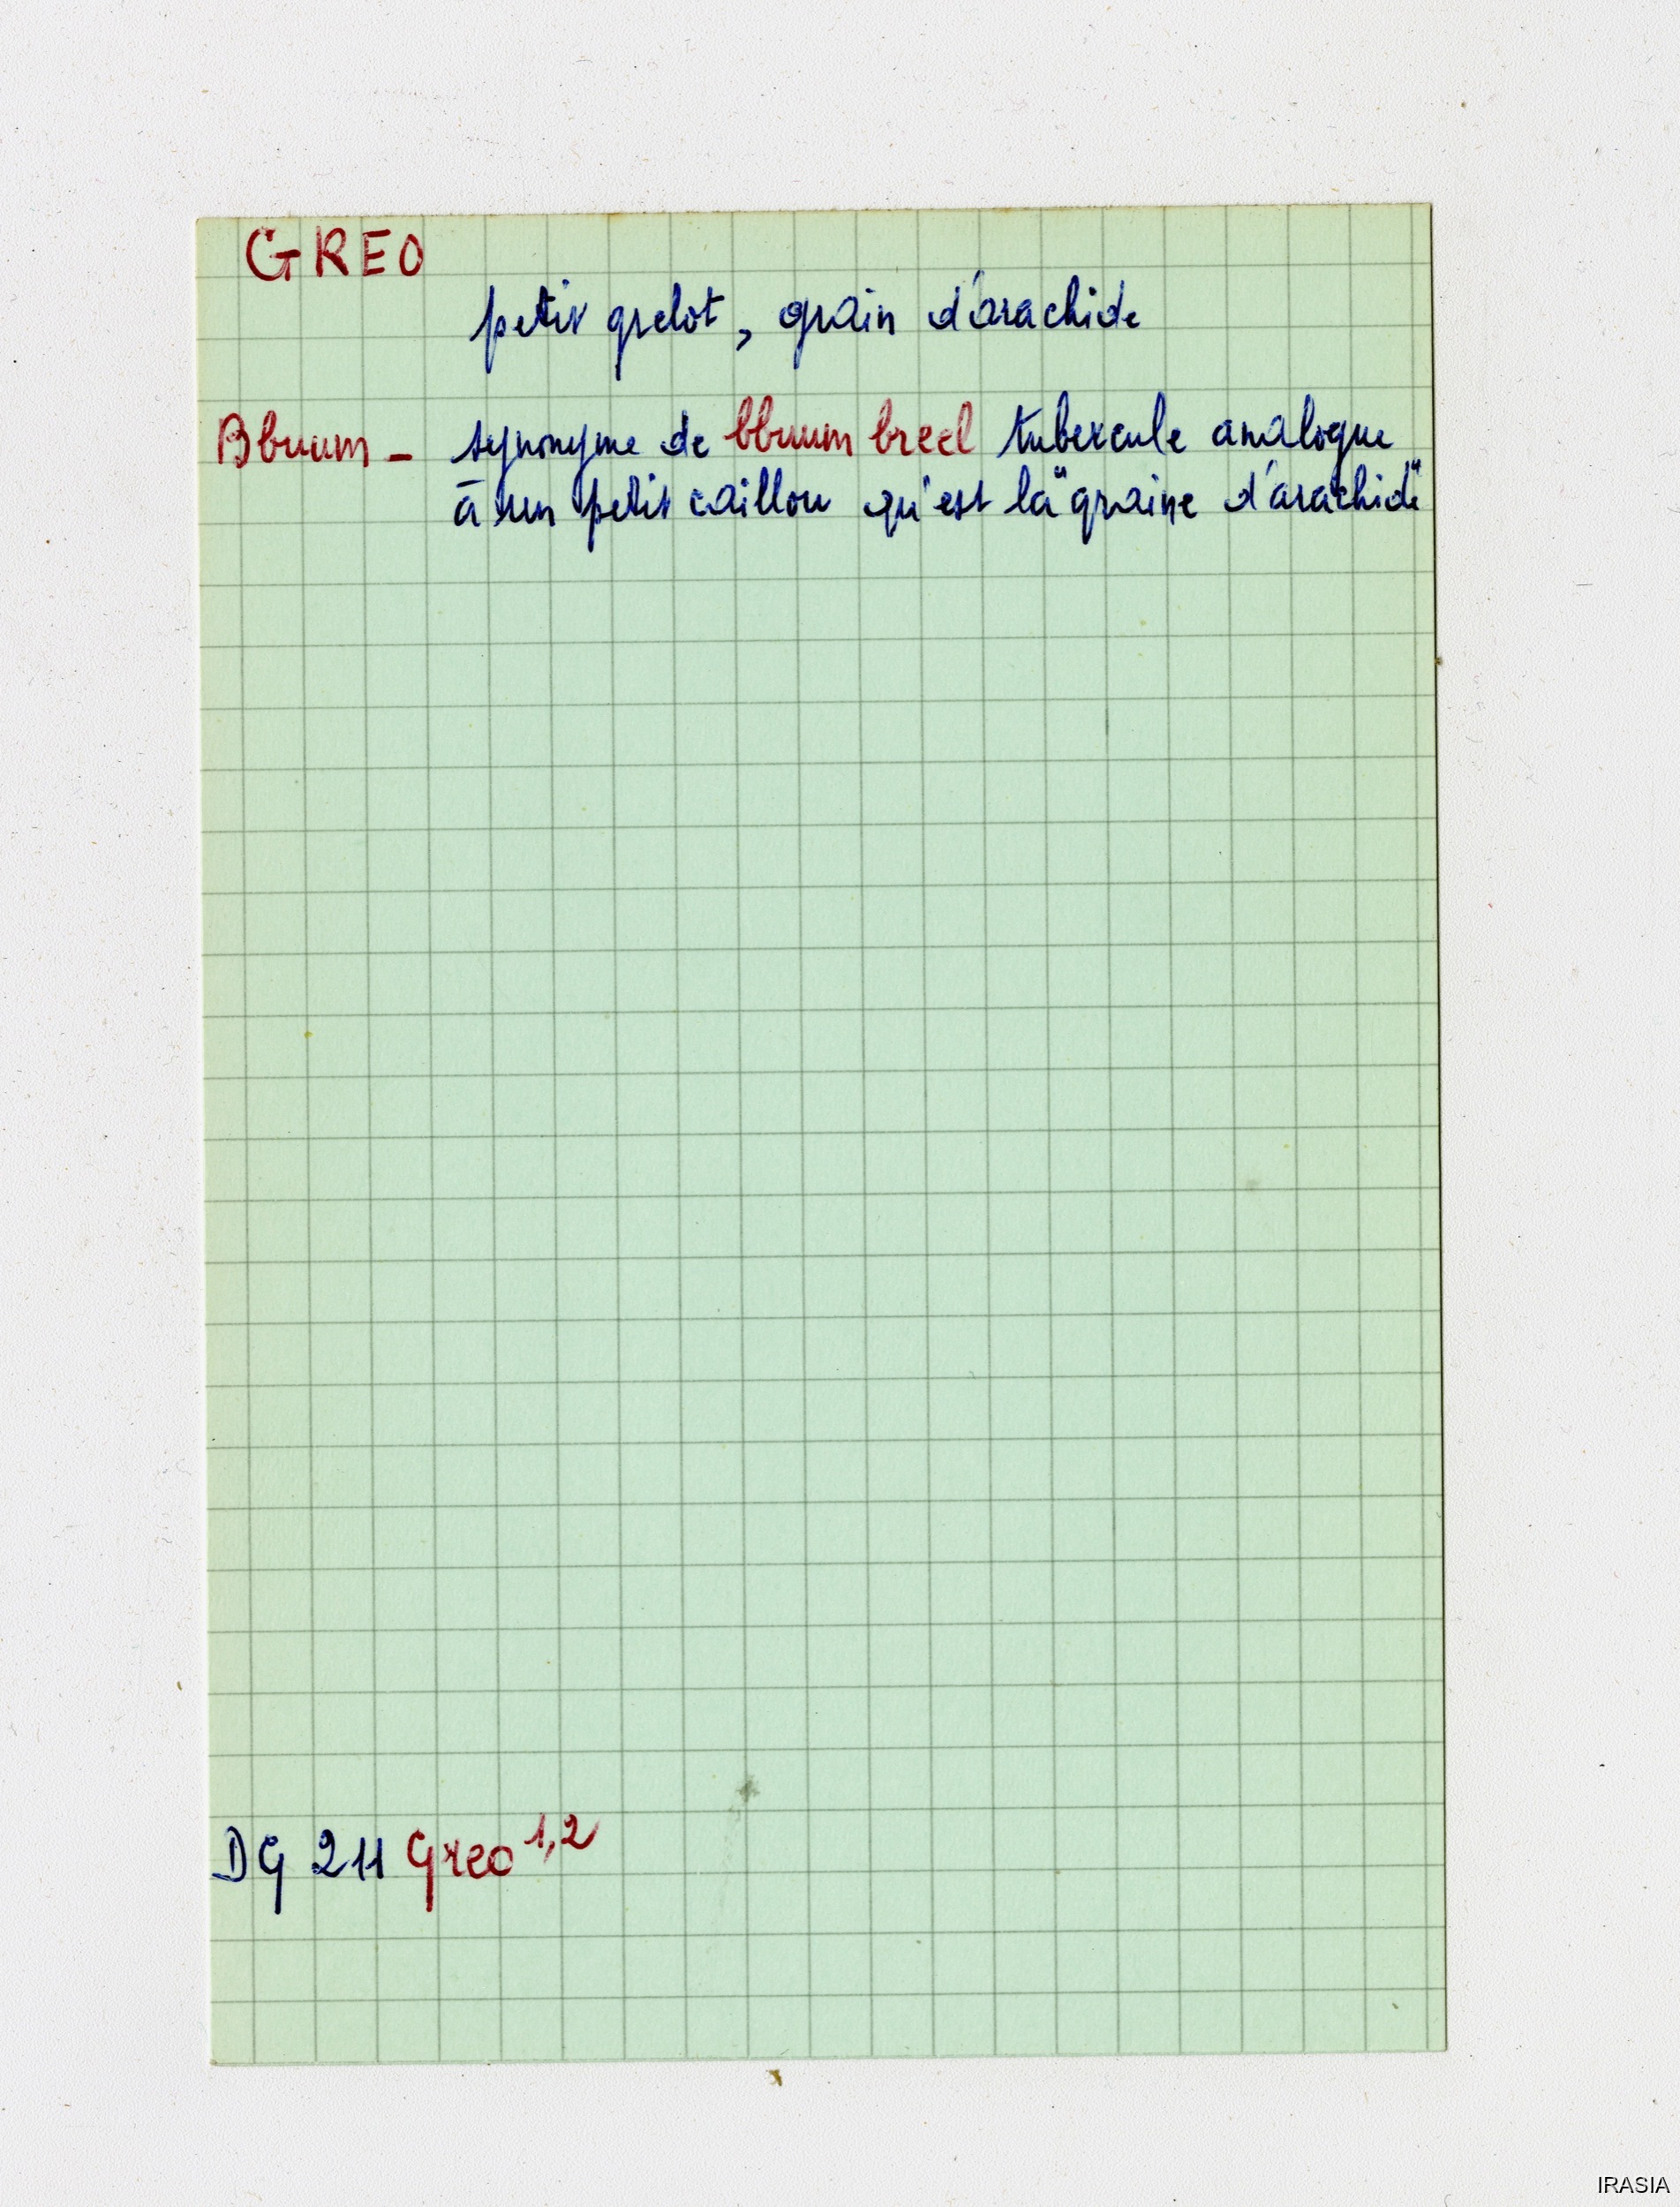 GREO
petit grelot, grain d'arachide
Bbuum – synonyme de bbuum breel tubercule analogue
à un petit caillou qu'est la "graine d'arachide"
DG 211 Greo 1,2
IRASIA